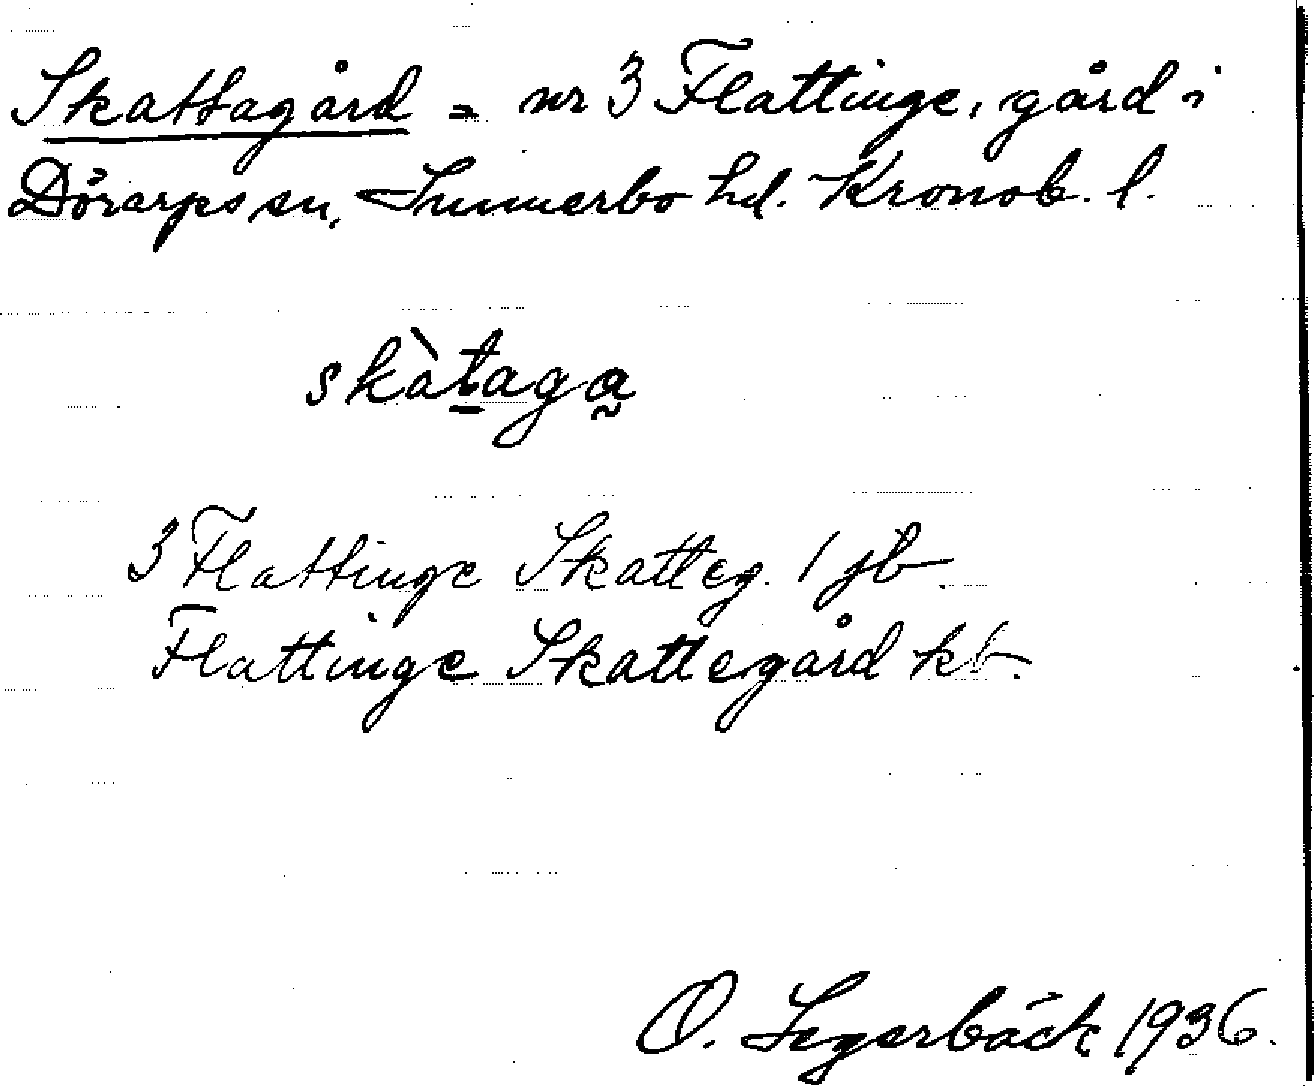 Skattagård = nr 3 Flattinge, gård i
Dörarps sn, Sunnerbo hd. Kronob. l.
skàtaga
3 Flattinge Skatteg. 1 jb.
Flattinge Skattegård kb.
O. Segerbäck 1936.